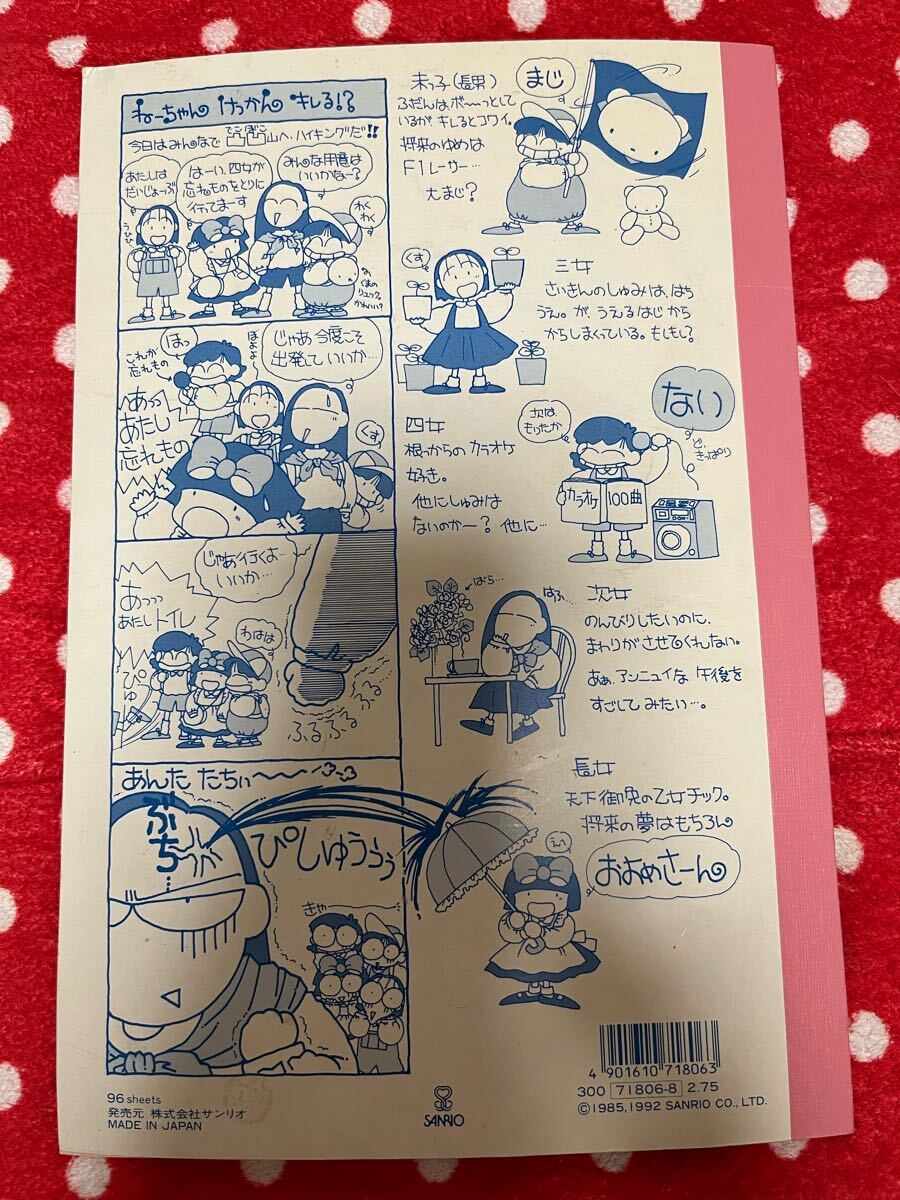 ねーちゃん けっかん キレる!?
今日は みんなで 凸凹山へ ハイキングだ!!
でこぼこ
あたしは
だいじょーぶ
うひひ
はーい、四女が
忘れものをとりに
行ってまーす
みんな用意は
いいかなー?
わく
わく
くまの
リュック。
かわいい?
これが
忘れもの
はっ
ぽよよ
じゃあ 今度こそ
出発して いいか…
あっっ
あたし
忘れもの
くす
じゃあ行くよ…
いいか…
あっっっ
あたし トイレ
ぴゅ
わはは
ふるふる
あんた たちぃ〜〜
ぶち…
ぴしゅうぅぅ
きゃ
末っ子(長男)
ふだんはボ〜っとして
いるが キレるとコワイ。
将来のゆめは
F1レーサー…
大まじ?
まじ
くす
三女
さいきんのしゅみは、はち
うえ。が、うえるはじから
からしまくっている。もしもし?
四女
根っからの カラオケ
好き。
他にしゅみは
ないのかー? 他に…
次は
もりたか
カラオケ 100曲
ない
ど、
きっぱり
ばら…
はふ…
次女
のんびりしたいのに、
まわりが させてくれない。
あぁ、アンニュイな 午後を
すごして みたい…。
長女
天下御免の乙女チック。
将来の夢はもちろん
およめさーん
96 sheets
発売元 株式会社サンリオ
MADE IN JAPAN
SANRIO
4 901610 718063
300 71806-8 2.75
©1985, 1992 SANRIO CO., LTD.